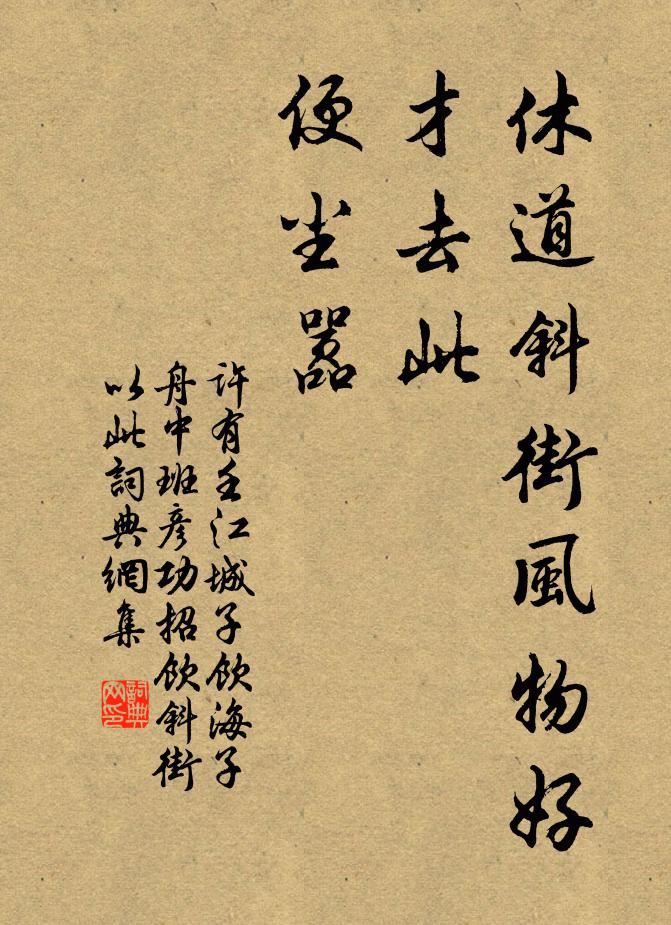 休道斜街風物好
才去此
便尘嚣
許有壬江城子飲海子
舟中班彦功招飲斜街
以此詞典網集
詞典网印